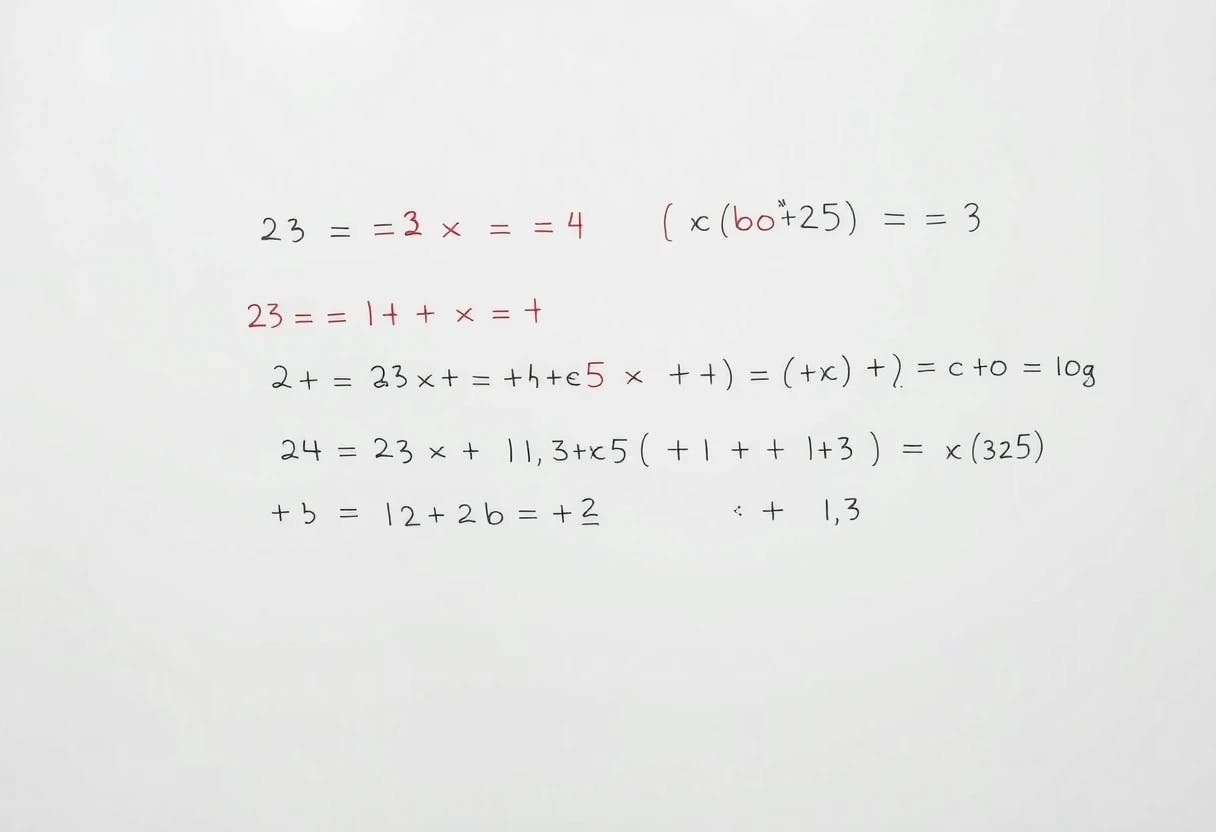 23 = =3 x = =4 ( x (bo˟+25) = = 3
23 = = 1t + x = +
2+ = 23x+ = +h+e5 x ++) = (+x) +) = c+o = log
24 = 23 x + 11,3+x5 ( +1 + + 1+3 ) = x (325)
+5 = 12+2b = +2 + 1,3